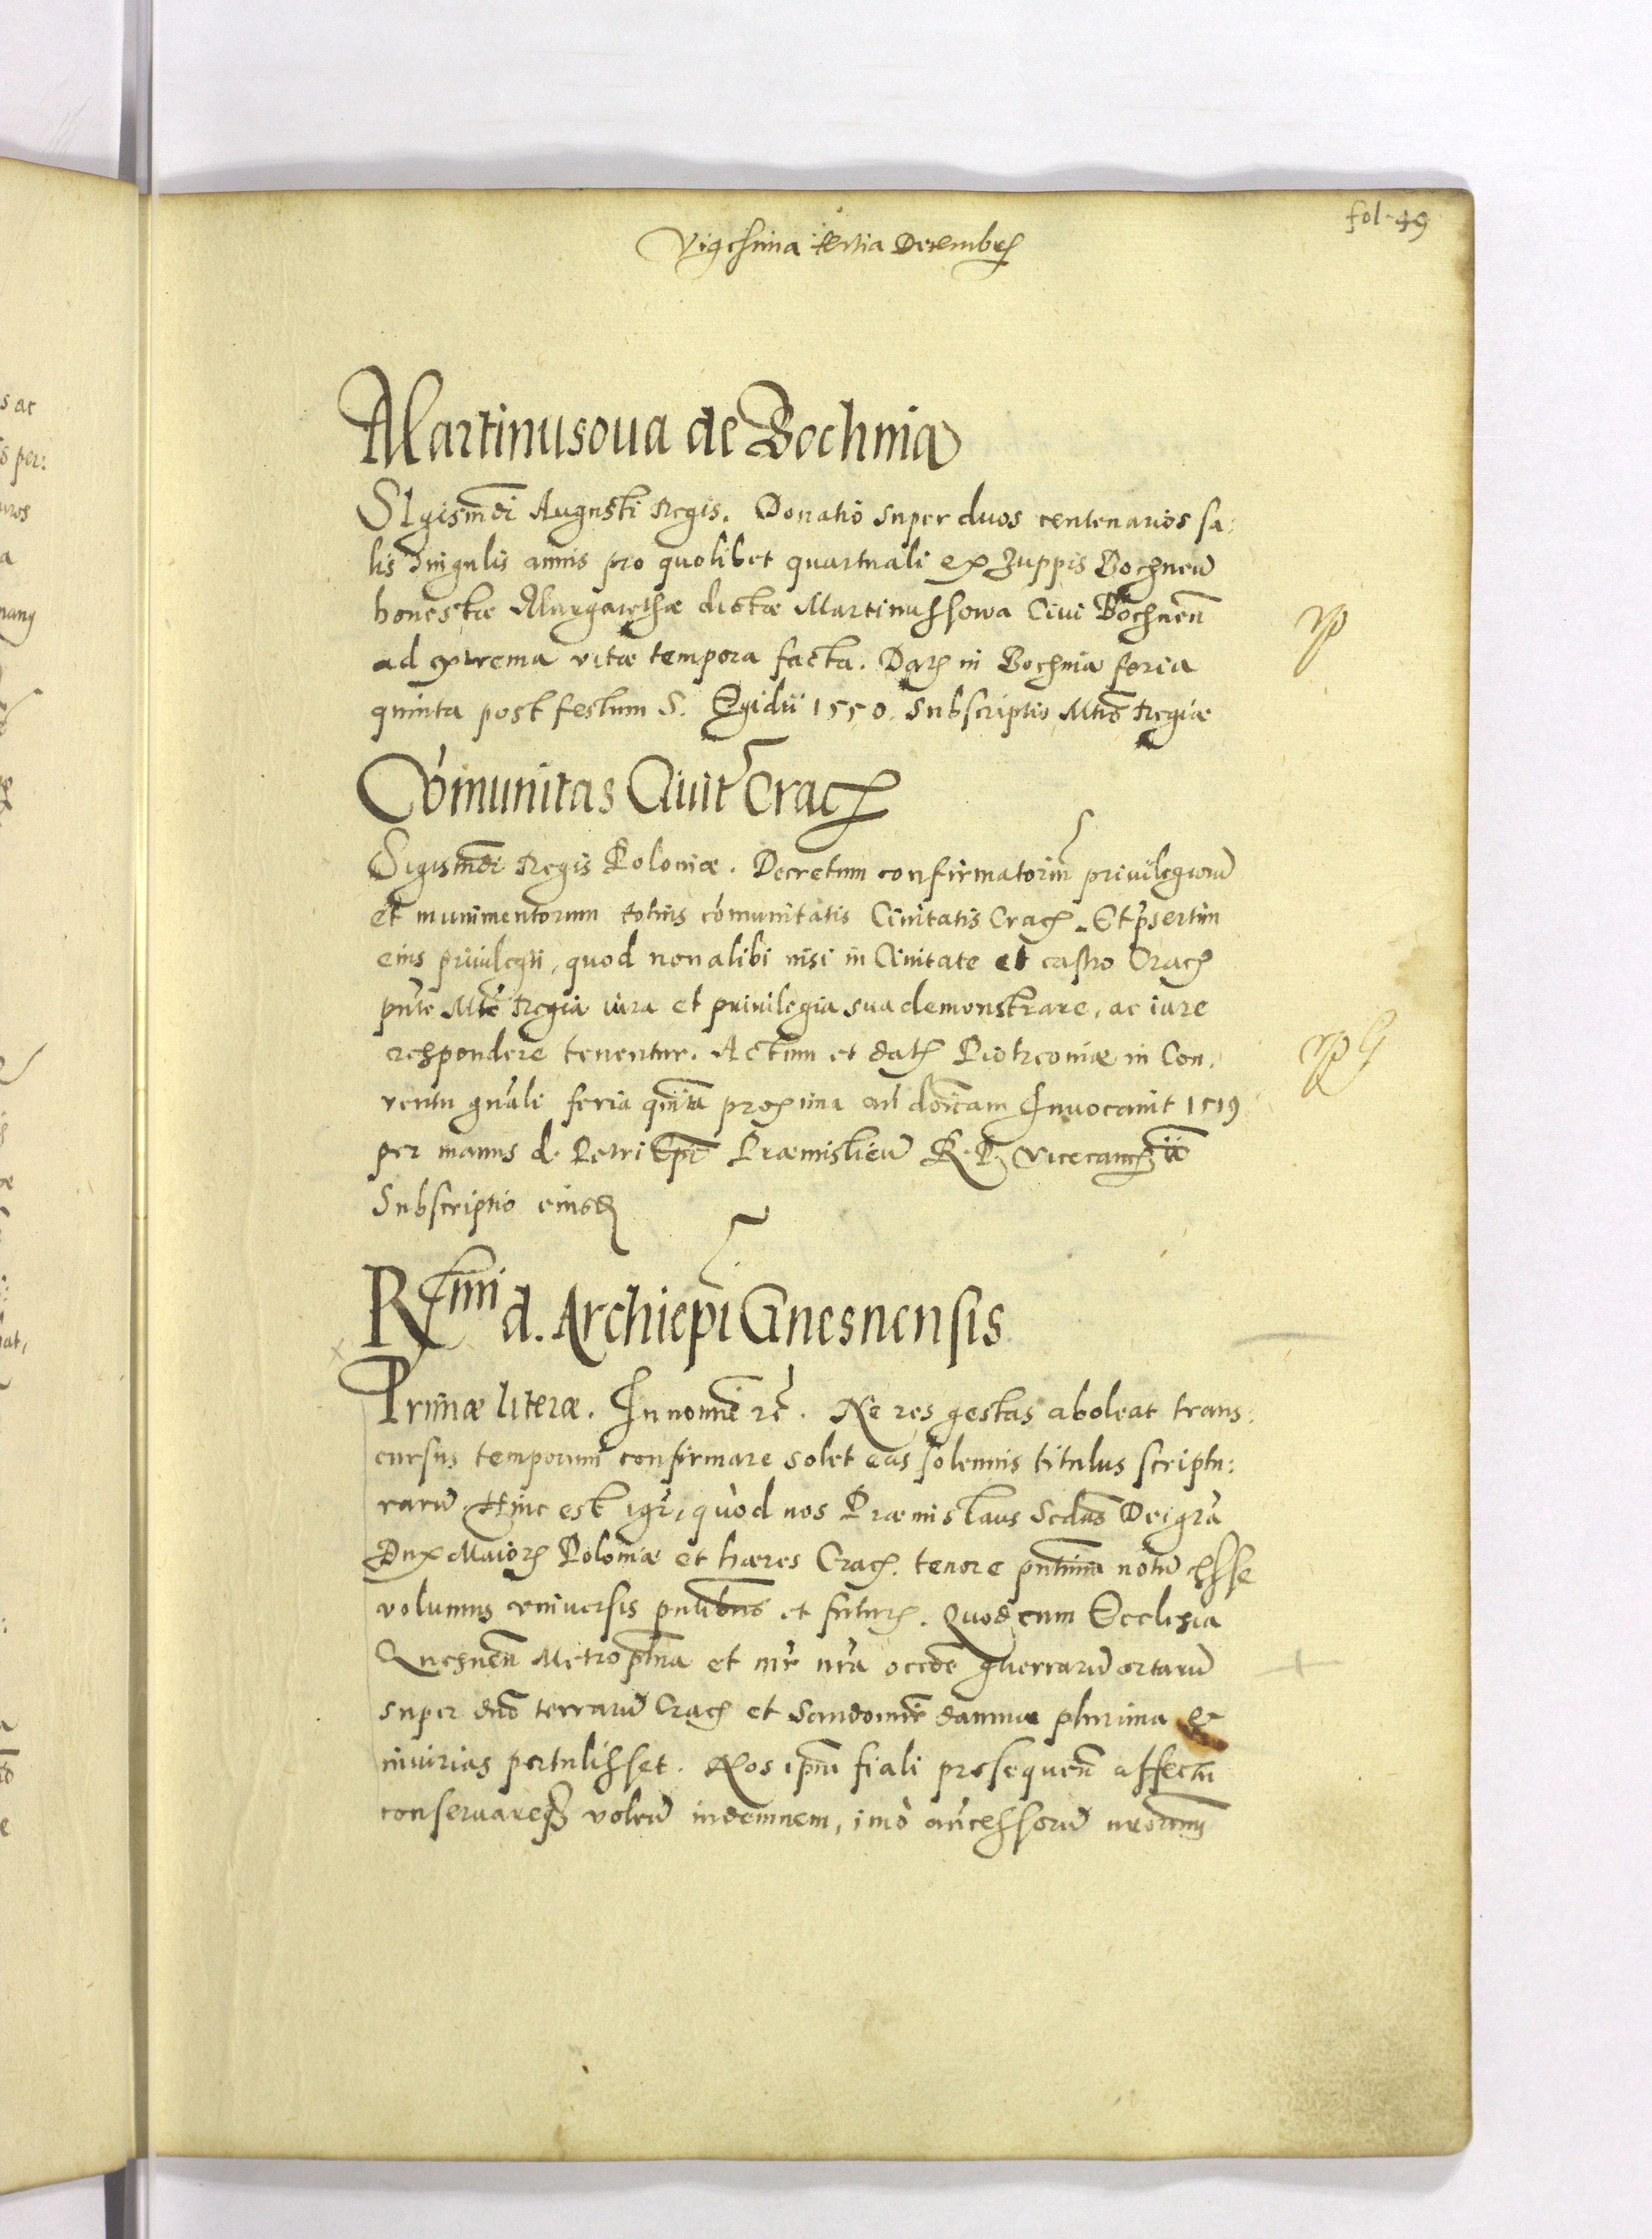 fol. 49
Vigesima tertia Decembris
Martinusoua de Bochnia
SIgismūdi Augusti Regis. Donatio super duos centenarios sa:
lis singulis annis pro quolibet quartuali ex Zuppis Bochneñ
honestæ Margarethæ dictæ Martinussowa Ciui Bochneñ
ad extrema vitæ tempora facta. Dat in Bochnia feria
quinta post festum S. Egidii 1550. Subscriptio Mtis Regiæ
Cōmunitas Ciuit Crac
Sigismūdi Regis Poloniæ. Decretum confirmatoriū priuilegiorū
et munimentorum totius cōmunitatis Ciuitatis Crac. Et p̄sertim
eius priuilegii, quod non alibi nisi in Ciuitate et castro Crac
pn̄te Mte Regia iura et priuilegia sua demonstrare, ac iure
respondere tenentur. Actum et dat Piotrcouiæ in Con.
ventu gn̄ali feria quinta proxima an̄ dōicam Inuocauit 1519
per manus d. Petri Epī Præmislien̄ R. P. Vicecanc
Subscriptio eiusd
Rmi d. Archiepī Gnesnensis
Primæ literæ. In nomīe rc̄. Ne res gestas aboleat trans:
cursus temporum confirmare solet eas solemnis titulus scriptu:
rarū. Hinc est igr̄, quòd nos Præmislaus Scdus Dei gr̄a
Dux Maioris Poloniæ et hæres Crac. tenore pn̄tium notū esse
volumus vniuersis pn̄tibus et futuris. Quod cum Ecclesia
Gnesnen̄ Metroplna et nr̄e nr̄a occōe guerrarū ortarū
super dn̄io terrarū Crac et Sandomir̄ damna plurima et
iniurias pertulisset. Nos ipm̄ fiali prosequen̄ affectu
conseruareqꝫ volen̄ indemnem, imò an̄cessorū nr̄orum